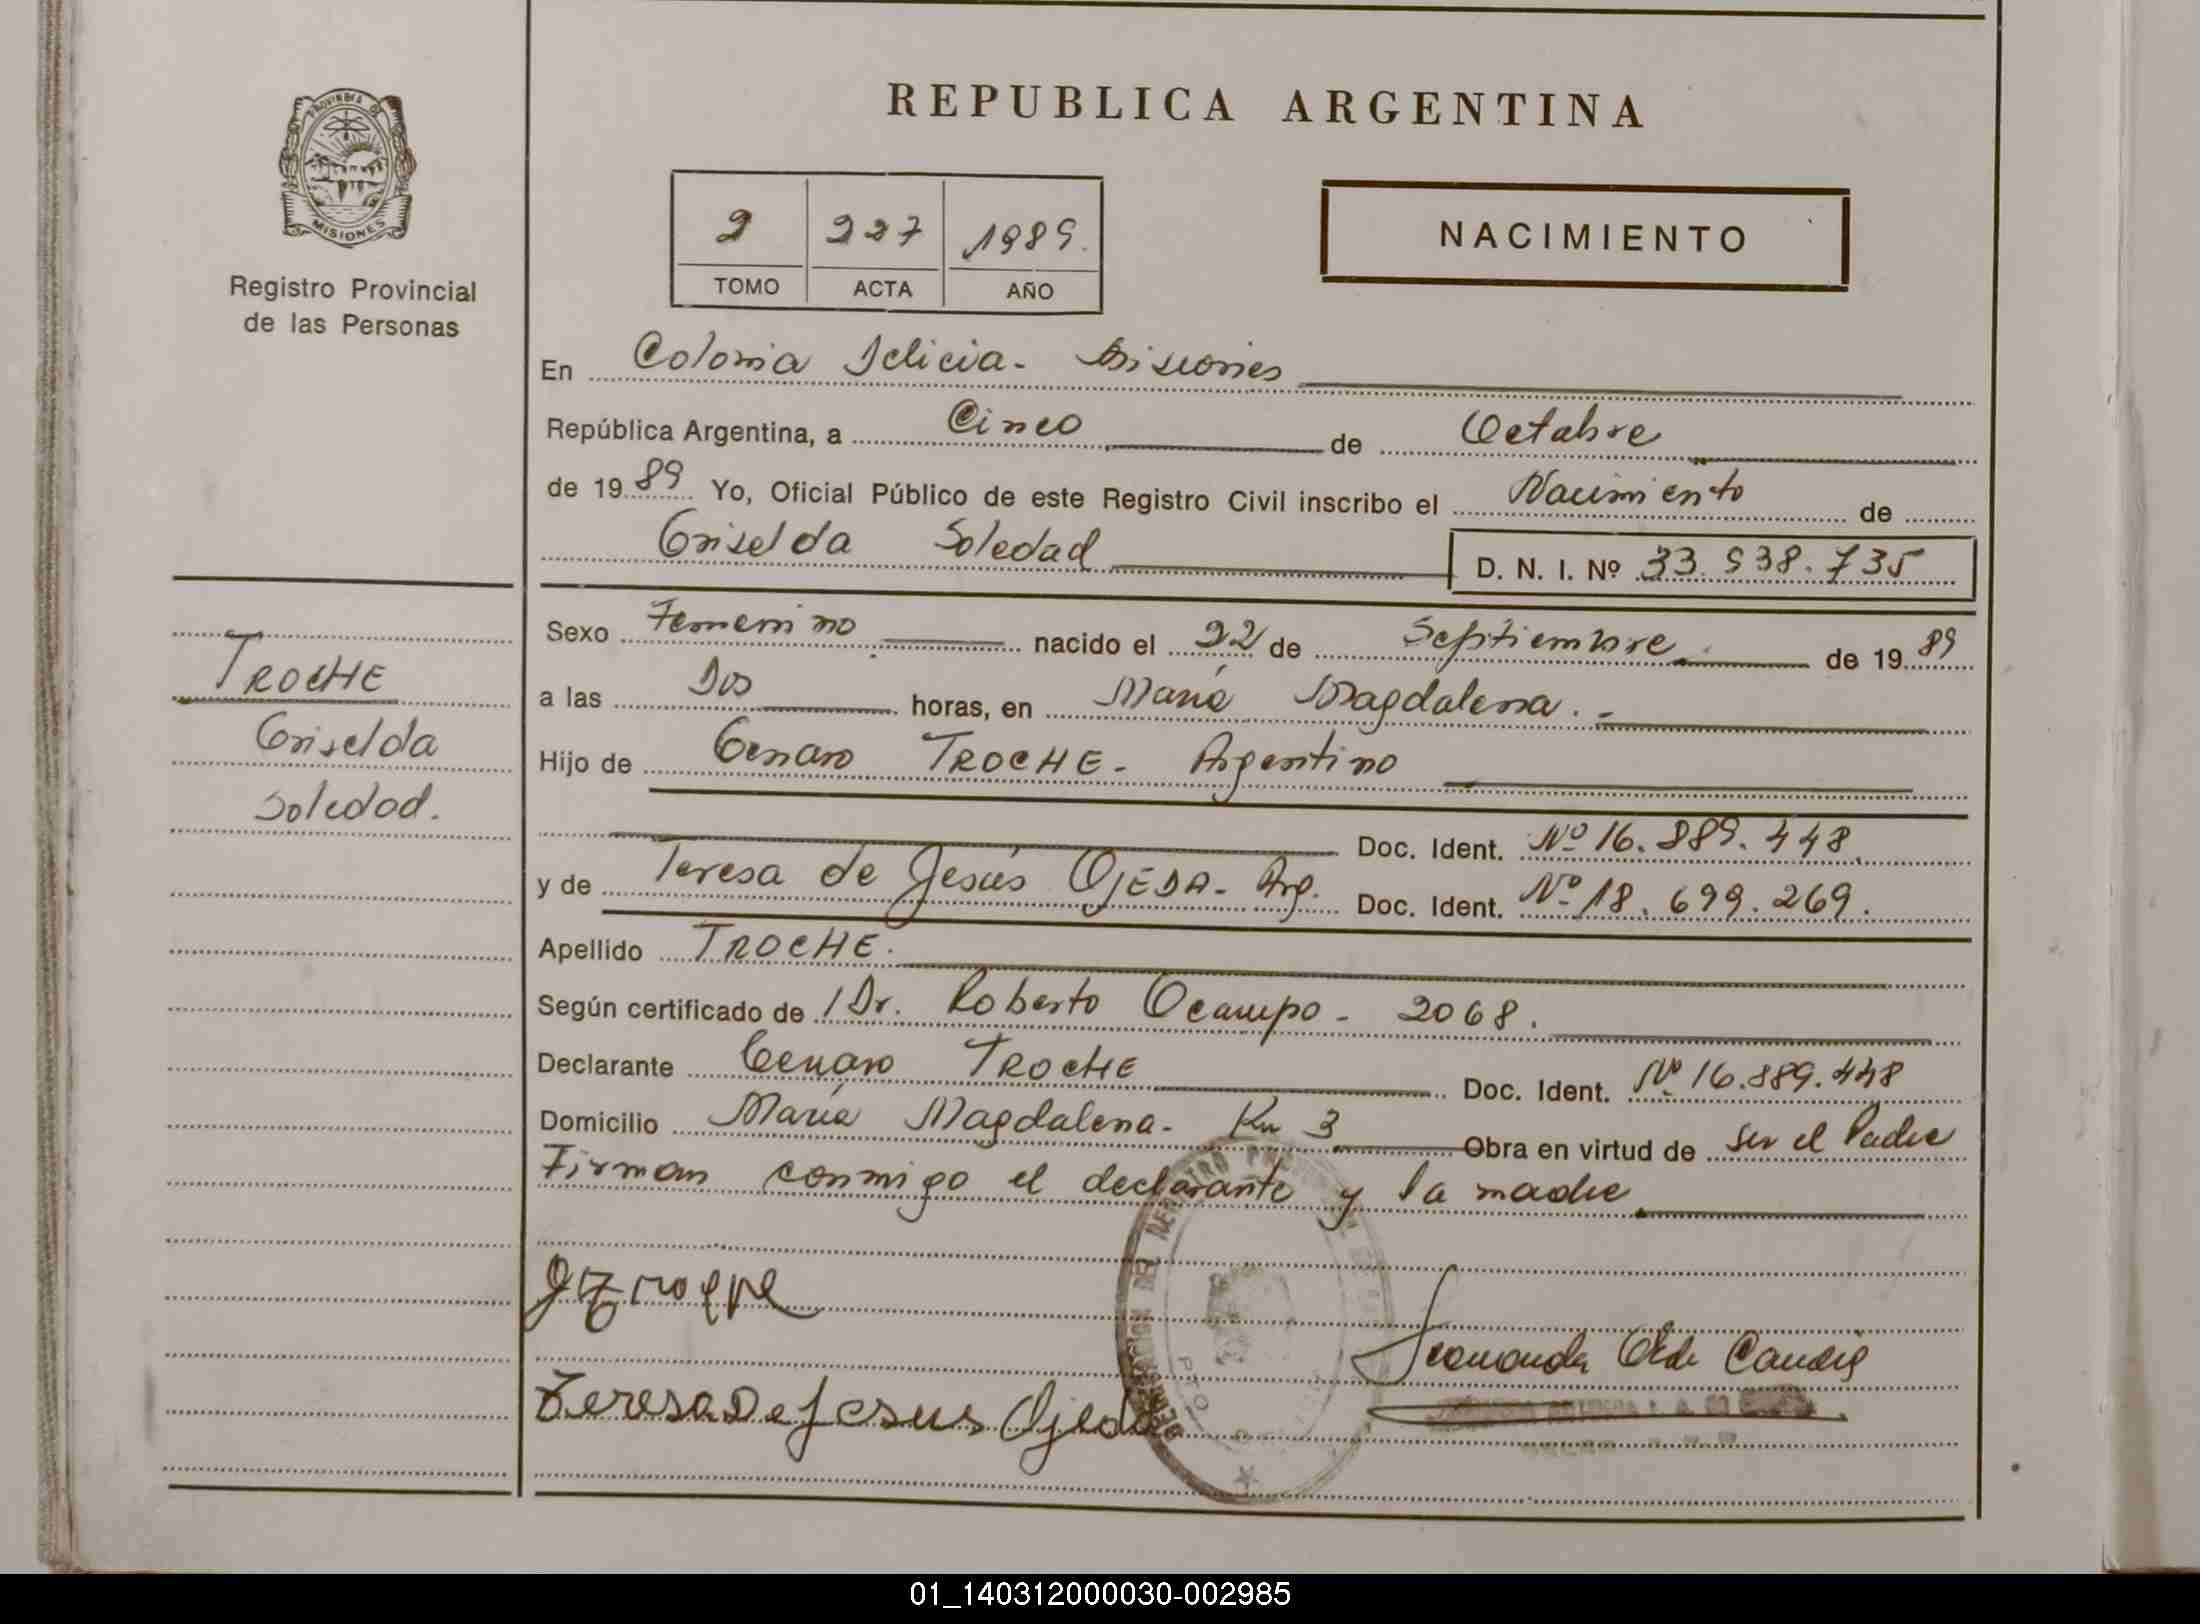 REPUBLICA ARGENTINA
PROVINCIA DE
MISIONES
Registro Provincial
de las Personas
2 227 1989.
TOMO ACTA AÑO
NACIMIENTO
En Colonia Delicia - Misiones
República Argentina, a Cinco de Octubre
de 1989 Yo, Oficial Público de este Registro Civil inscribo el Nacimiento de
Griselda Soledad D. N. I. Nº 33.938.735
Sexo Femenino nacido el 22 de Septiembre de 1989
a las Dos horas, en María Magdalena. -
Hijo de Genaro TROCHE - Argentino
Doc. Ident. Nº 16.889.448.
y de Teresa de Jesús OJEDA - Arg. Doc. Ident. Nº 18.699.269.
Apellido TROCHE.
Según certificado de / Dr. Roberto Ocampo - 2068.
Declarante Genaro TROCHE Doc. Ident. Nº 16.889.448
Domicilio María Magdalena - Km 3 Obra en virtud de Ser el Padre
Firman conmigo el declarante y la madre
Teresa De Jesus Ojeda
TROCHE
Griselda
Soledad.
01_140312000030-002985